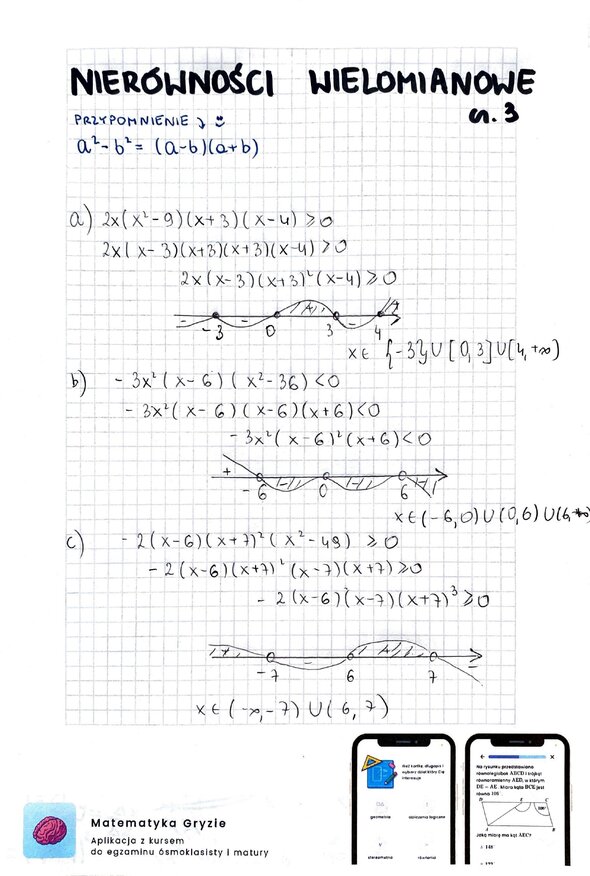 NIERÓWNOŚCI WIELOMIANOWE
cz. 3
PRZYPOMNIENIE
a² - b² = (a-b)(a+b)
a) 2x(x²-9)(x+3)(x-4) ⩾ 0
2x(x-3)(x+3)(x+3)(x-4) ⩾ 0
2x(x-3)(x+3)²(x-4) ⩾ 0
- - + - +
-3 0 3 4
x ∈ {-3} ∪ [0,3] ∪ [4,+∞)
b) -3x²(x-6)(x²-36) < 0
-3x²(x-6)(x-6)(x+6) < 0
-3x²(x-6)²(x+6) < 0
+ - - -
-6 0 6
x ∈ (-6,0) ∪ (0,6) ∪ (6,+∞)
c) -2(x-6)(x+7)²(x²-49) ⩾ 0
-2(x-6)(x+7)²(x-7)(x+7) ⩾ 0
-2(x-6)(x-7)(x+7)³ ⩾ 0
+ - + -
-7 6 7
x ∈ (-∞,-7) ∪ (6,7)
Matematyka Gryzie
Aplikacja z kursem
do egzaminu ósmoklasisty i matury
wybierz dział, który Cię
interesuje
geometria
obliczenia logiczne
stereometria
równania
Na rysunku przedstawiono
równoległobok ABCD i trójkąt
równoramienny AED, w którym
DE = AE. Miara kąta BCE jest
równa 108°
D E C
108°
A B
Jaką miarę ma kąt AEC?
A 148